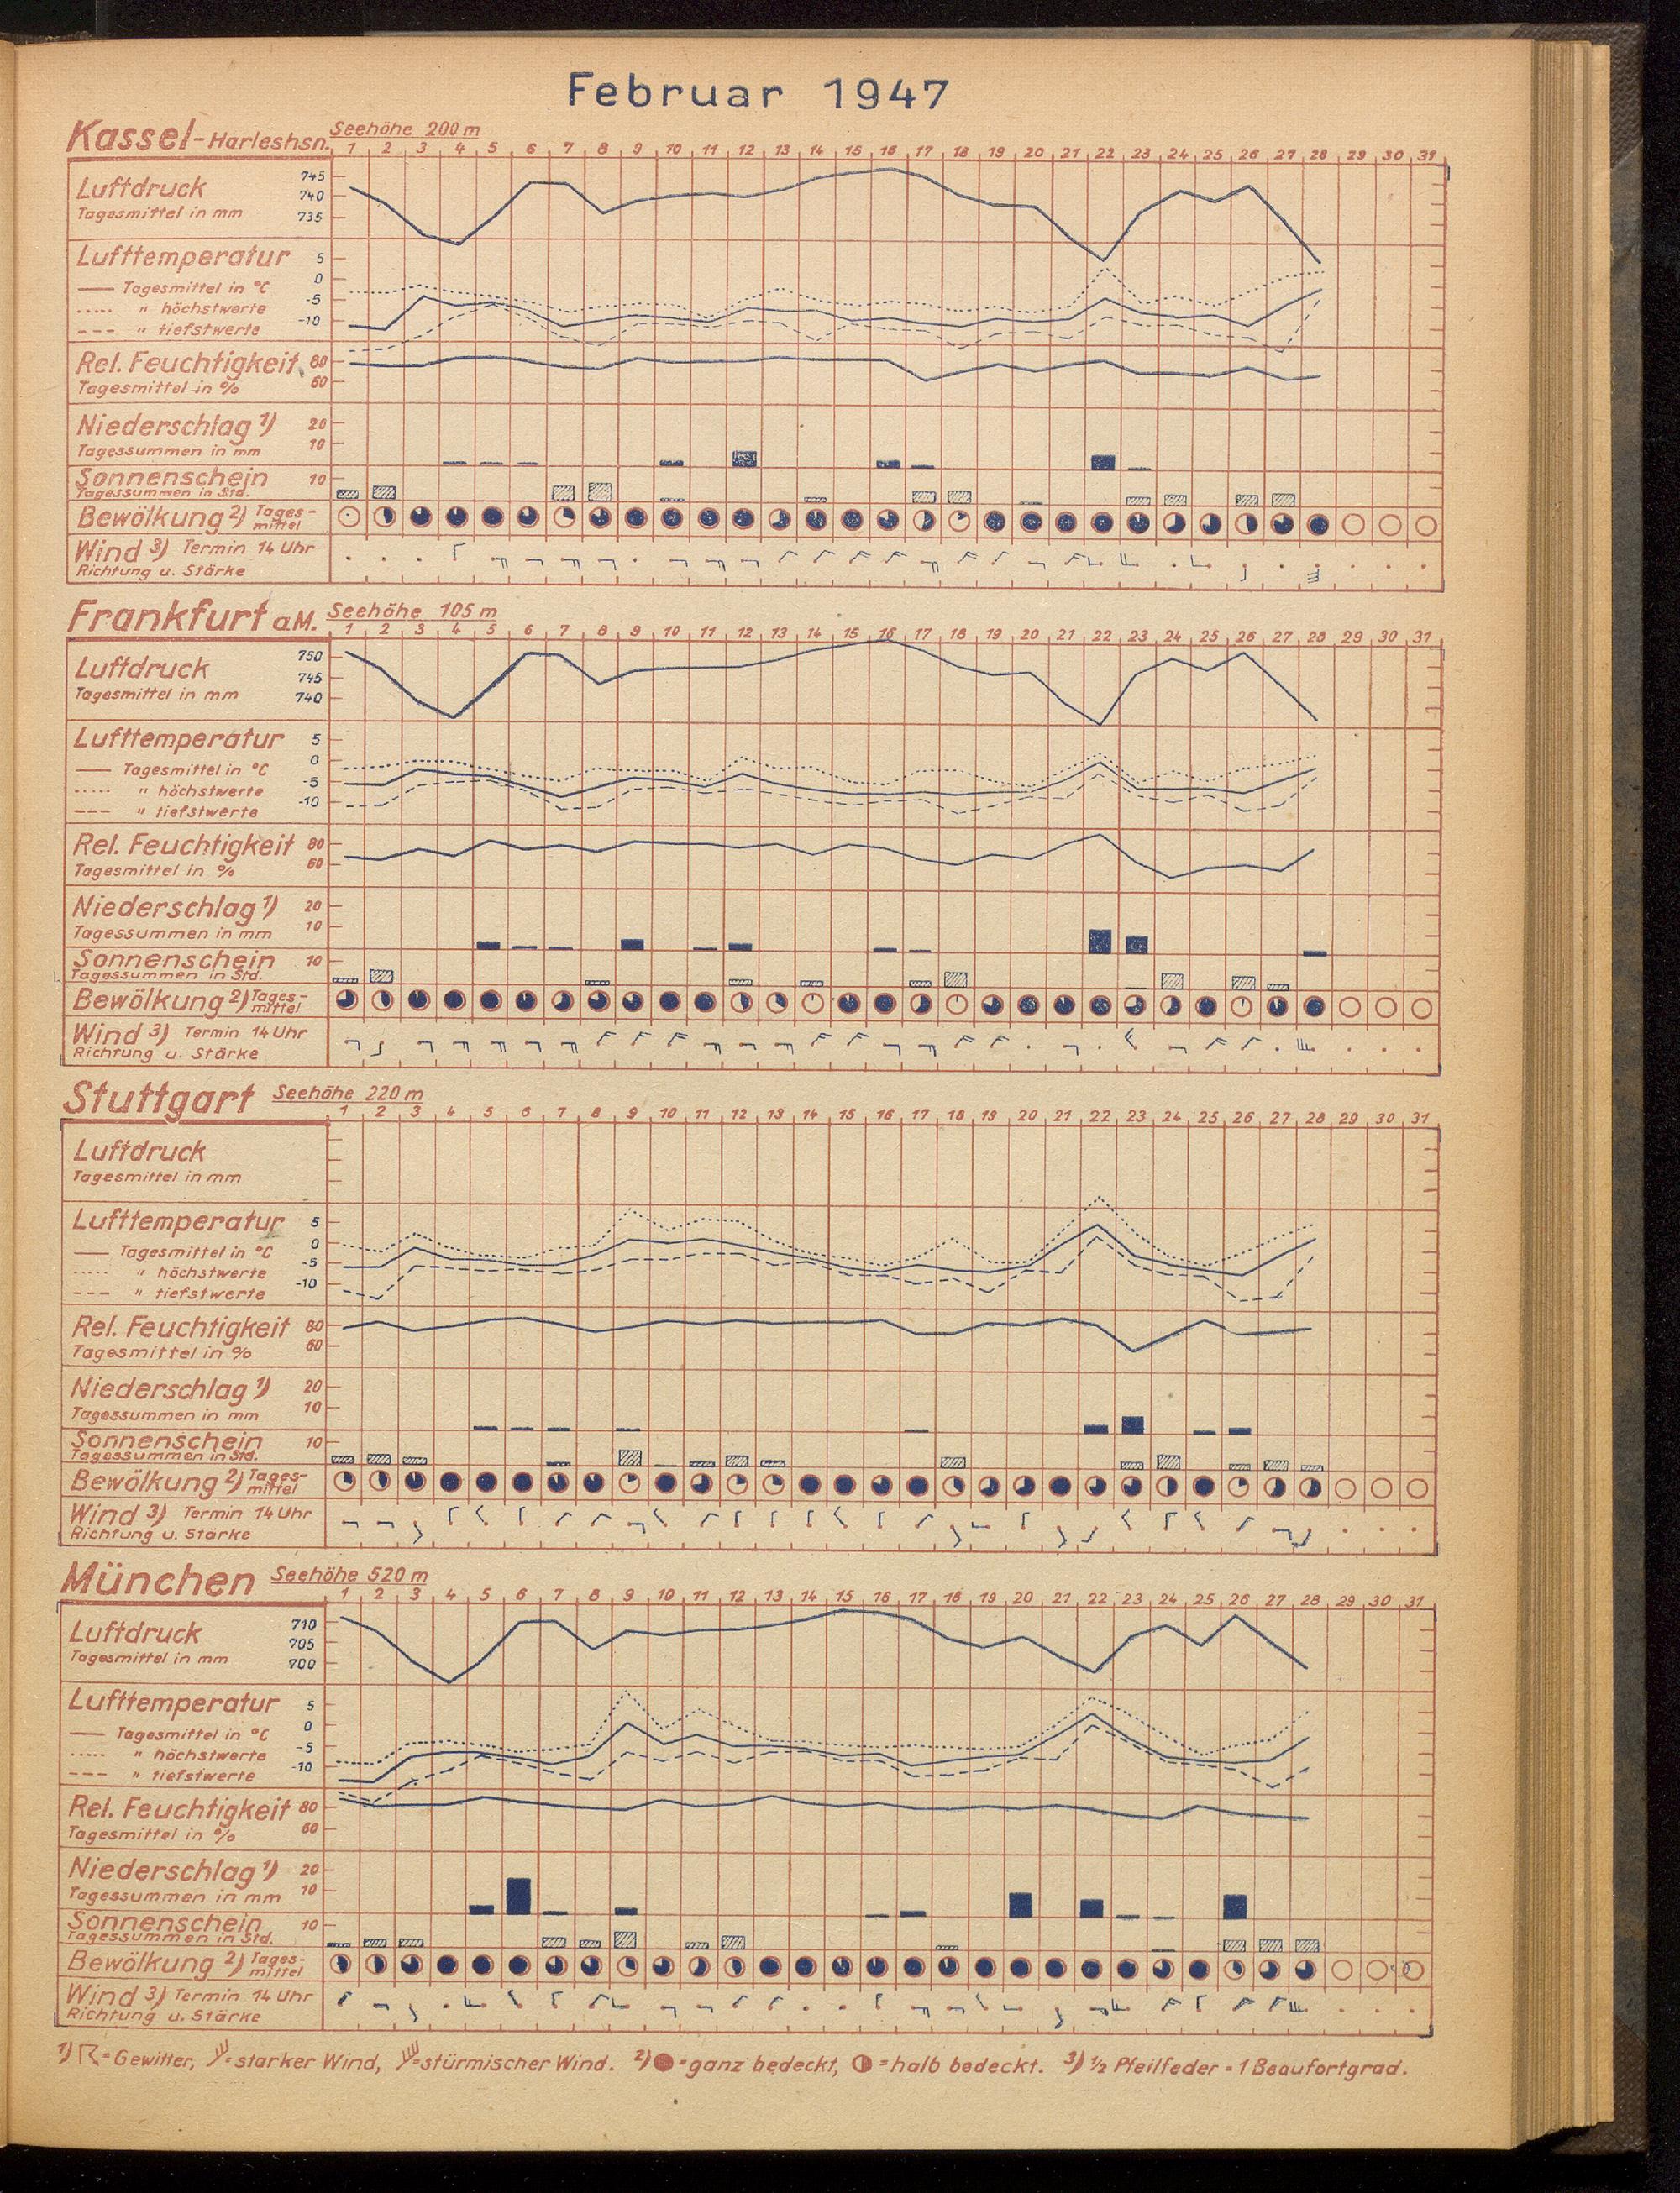 Februar 1947
Kassel-Harleshsn. Seehöhe 200 m
1 2 3 4 5 6 7 8 9 10 11 12 13 14 15 16 17 18 19 20 21 22 23 24 25 26 27 28 29 30 31
Luftdruck 745
740
Tagesmittel in mm 735
Lufttemperatur 5
0
Tagesmittel in °C
-5
" höchstwerte
-10
" tiefstwerte
Rel. Feuchtigkeit 80
Tagesmittel in % 60
Niederschlag 1) 20
Tagessummen in mm 10
Sonnenschein 10
Tagessummen in Std.
Bewölkung 2) Tages-
mittel
Wind 3) Termin 14 Uhr
Richtung u. Stärke
Frankfurt a.M. Seehöhe 105 m
1 2 3 4 5 6 7 8 9 10 11 12 13 14 15 16 17 18 19 20 21 22 23 24 25 26 27 28 29 30 31
Luftdruck 750
745
Tagesmittel in mm 740
Lufttemperatur 5
0
Tagesmittel in °C
-5
" höchstwerte
-10
" tiefstwerte
Rel. Feuchtigkeit 80
Tagesmittel in % 60
Niederschlag 1) 20
Tagessummen in mm 10
Sonnenschein 10
Tagessummen in Std.
Bewölkung 2) Tages-
mittel
Wind 3) Termin 14 Uhr
Richtung u. Stärke
Stuttgart Seehöhe 220 m
1 2 3 4 5 6 7 8 9 10 11 12 13 14 15 16 17 18 19 20 21 22 23 24 25 26 27 28 29 30 31
Luftdruck
Tagesmittel in mm
Lufttemperatur 5
0
Tagesmittel in °C
-5
" höchstwerte
-10
" tiefstwerte
Rel. Feuchtigkeit 80
Tagesmittel in % 60
Niederschlag 1) 20
Tagessummen in mm 10
Sonnenschein 10
Tagessummen in Std.
Bewölkung 2) Tages-
mittel
Wind 3) Termin 14 Uhr
Richtung u. Stärke
München Seehöhe 520 m
1 2 3 4 5 6 7 8 9 10 11 12 13 14 15 16 17 18 19 20 21 22 23 24 25 26 27 28 29 30 31
Luftdruck 710
705
Tagesmittel in mm 700
Lufttemperatur 5
0
Tagesmittel in °C
-5
" höchstwerte
-10
" tiefstwerte
Rel. Feuchtigkeit 80
Tagesmittel in % 60
Niederschlag 1) 20
Tagessummen in mm 10
Sonnenschein 10
Tagessummen in Std.
Bewölkung 2) Tages-
mittel
Wind 3) Termin 14 Uhr
Richtung u. Stärke
1) = Gewitter, = starker Wind, = stürmischer Wind. 2) = ganz bedeckt, = halb bedeckt. 3) ½ Pfeilfeder = 1 Beaufortgrad.